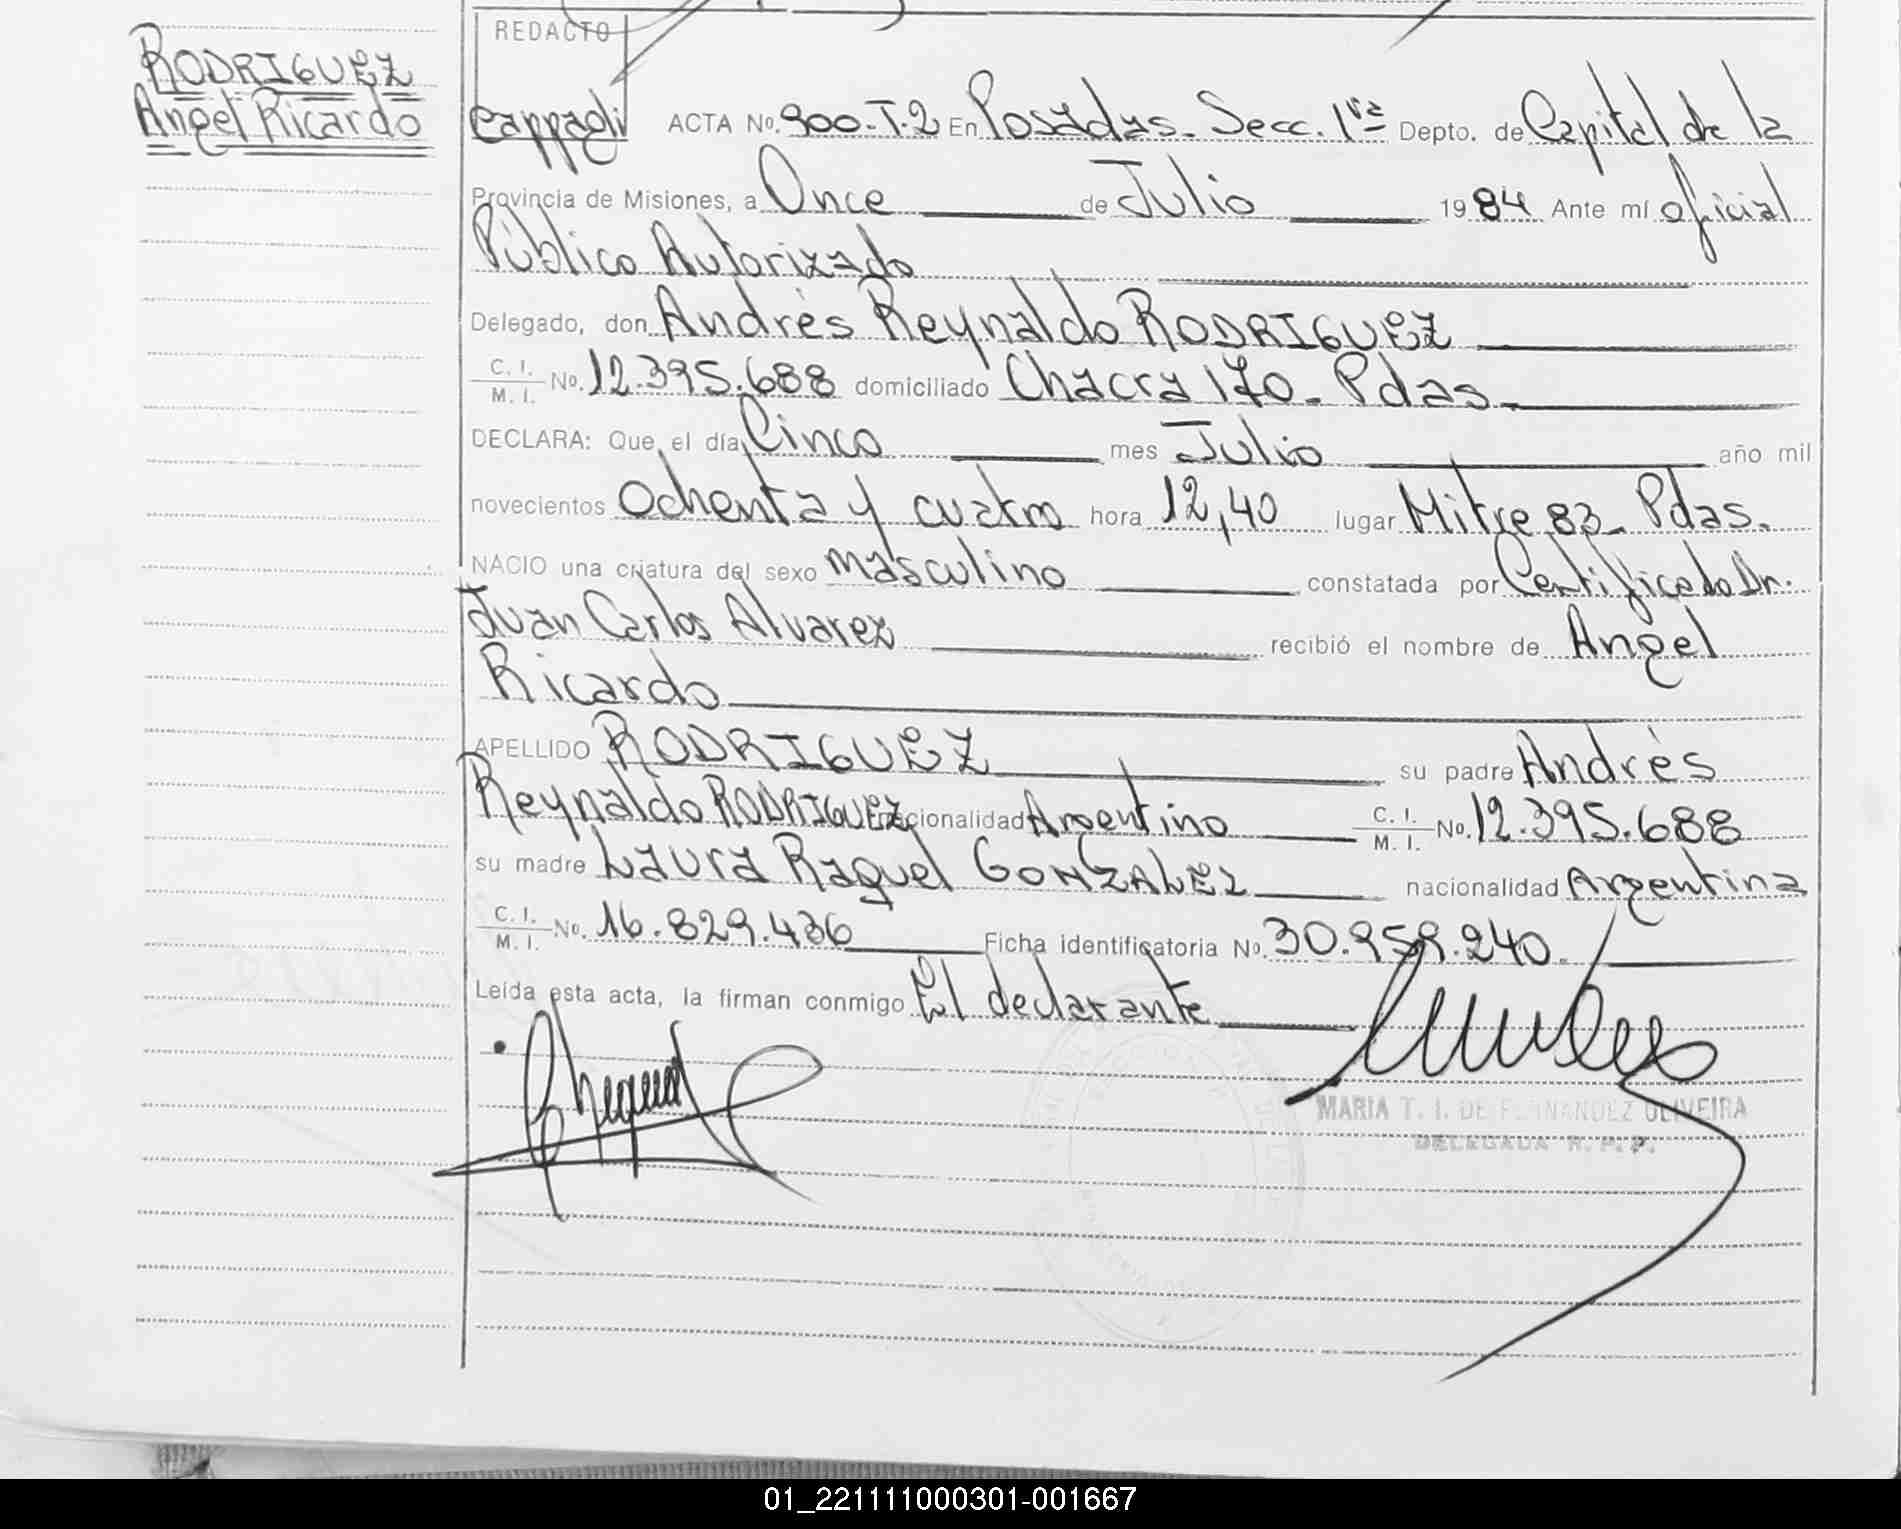 RODRIGUEZ
Angel Ricardo
REDACTO
Cappagli ACTA No. 900-T.2 En Posadas. Secc. 1ra Depto. de Capital de la
Provincia de Misiones, a Once de Julio 1984 Ante mí oficial
Público Autorizado
Delegado, don Andrés Reynaldo RODRIGUEZ
C. I. / M. I. No. 12.395.688 domiciliado Chacra 170. Pdas.
DECLARA: Que, el día Cinco mes Julio año mil
novecientos Ochenta y cuatro hora 12,40 lugar Mitre 83. Pdas.
NACIO una criatura del sexo masculino constatada por Certificado Dr.
Juan Carlos Alvarez recibió el nombre de Angel
Ricardo
APELLIDO RODRIGUEZ su padre Andrés
Reynaldo RODRIGUEZ nacionalidad Argentino C. I. / M. I. No. 12.395.688
su madre Laura Raquel GONZALEZ nacionalidad Argentina
C. I. / M. I. No. 16.829.436 Ficha identificatoria No. 30.959.240.
Leída esta acta, la firman conmigo El declarante
MARIA T. I. DE FERNANDEZ OLIVEIRA
DELEGADA R. P. P.
01_221111000301-001667